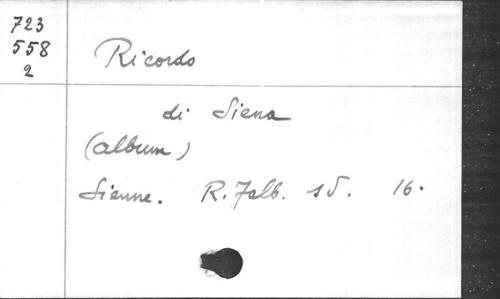 723
558
2
Ricordo
di Siena
(album)
Sienne. R. Falb. sd. 16.